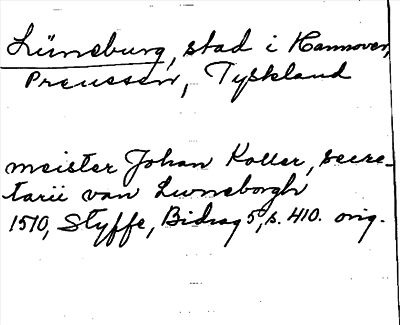 Lüneburg, stad i Hannover,
Preussen, Tyskland
meister Johan Koller, secre-
tarii van Lwneborgh
1510, Styffe, Bidrag 5, s. 410. orig.